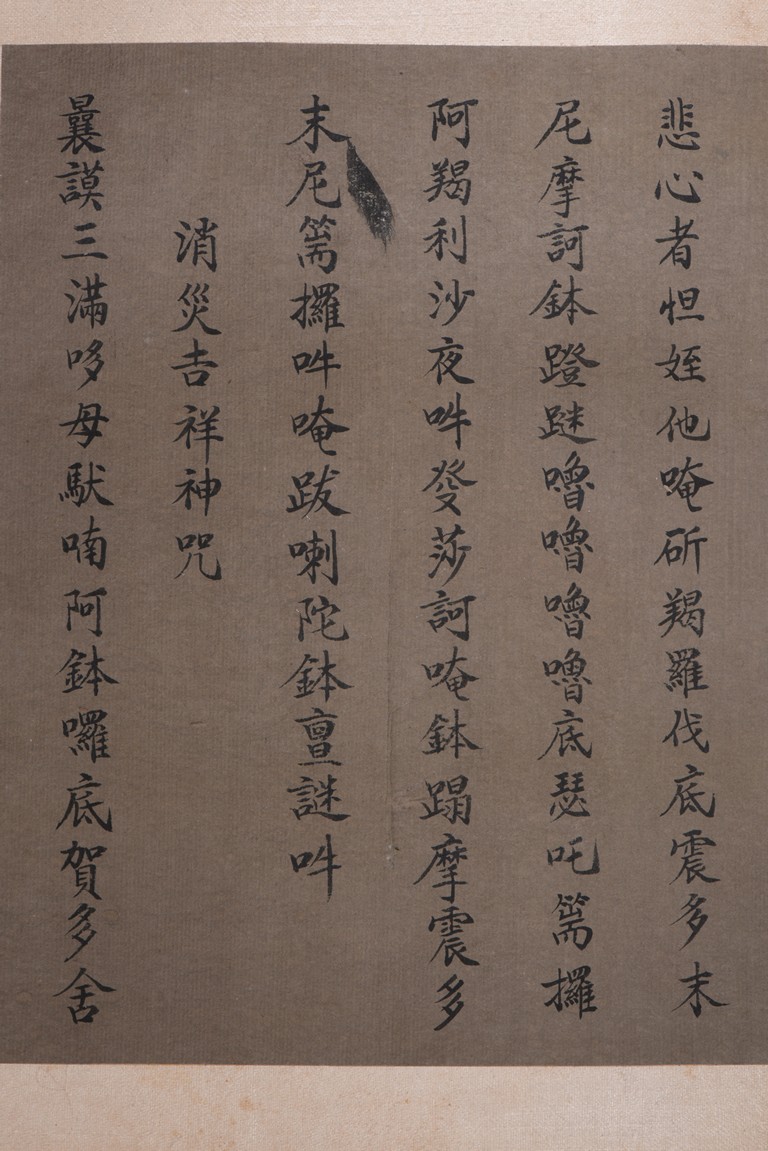 悲心者怛姪他唵斫羯羅伐底震多末
尼摩訶鉢蹬謎嚕嚕嚕嚕底瑟吒篅攞
阿羯利沙夜吽發莎訶唵鉢蹋摩震多
末尼篅攞吽唵跋喇陀鉢亶謎吽
消災吉祥神咒
曩謨三滿哆母馱喃阿鉢囉底賀多舍